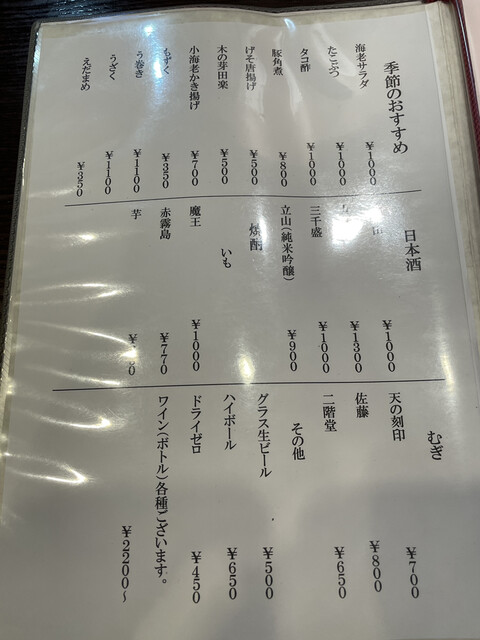 季節のおすすめ
海老サラダ ¥1000
たこぶつ ¥1000
タコ酢 ¥1000
豚角煮 ¥800
げそ唐揚げ ¥500
木の芽田楽 ¥500
小海老かき揚げ ¥700
もずく ¥350
う巻き ¥1100
うざく ¥1100
えだまめ ¥350
日本酒
¥1000
¥1300
三千盛 ¥1000
立山(純米吟醸) ¥900
焼酎
いも
魔王 ¥1000
赤霧島 ¥770
芋
むぎ
天の刻印 ¥700
佐藤 ¥800
二階堂 ¥650
その他
グラス生ビール ¥500
ハイボール ¥650
ドライゼロ ¥450
ワイン(ボトル)各種ございます。
¥2200～